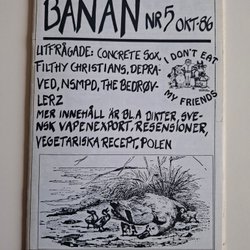 BANAN NR5 OKT-86
UTFRÅGADE: CONCRETE SOX,
FILTHY CHRISTIANS, DEPRA-
VED, NSMPD, THE BEDRØV-
LERZ
I DON'T EAT
MY FRIENDS
MER INNEHÅLL ÄR BLA DIKTER, SVE-
NSK VAPENEXPORT, RESENSIONER,
VEGETARISKA RECEPT, POLEN